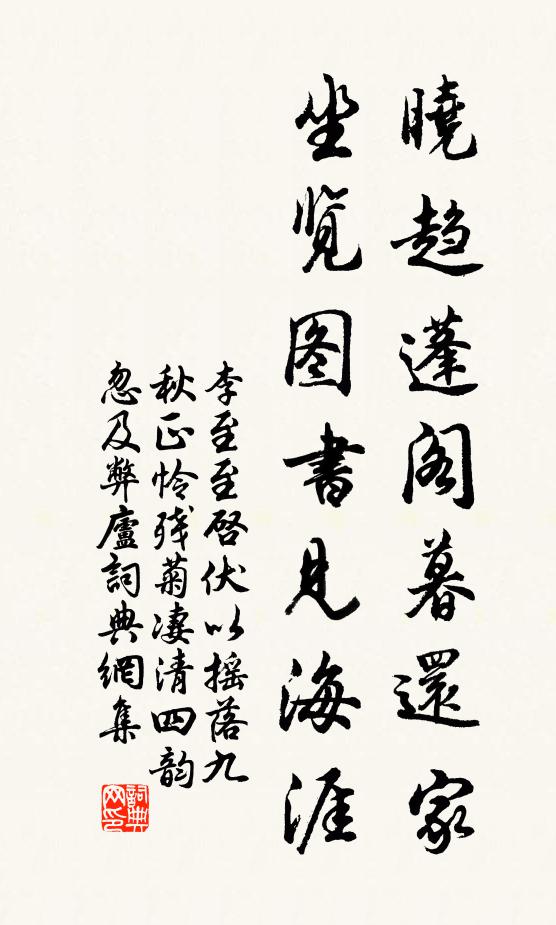 曉趋蓬阁暮還家
坐览图書見海涯
李至至啓伏以摇落九
秋正怜残菊凄清四韵
忽及弊廬詞典網集
詞典网印